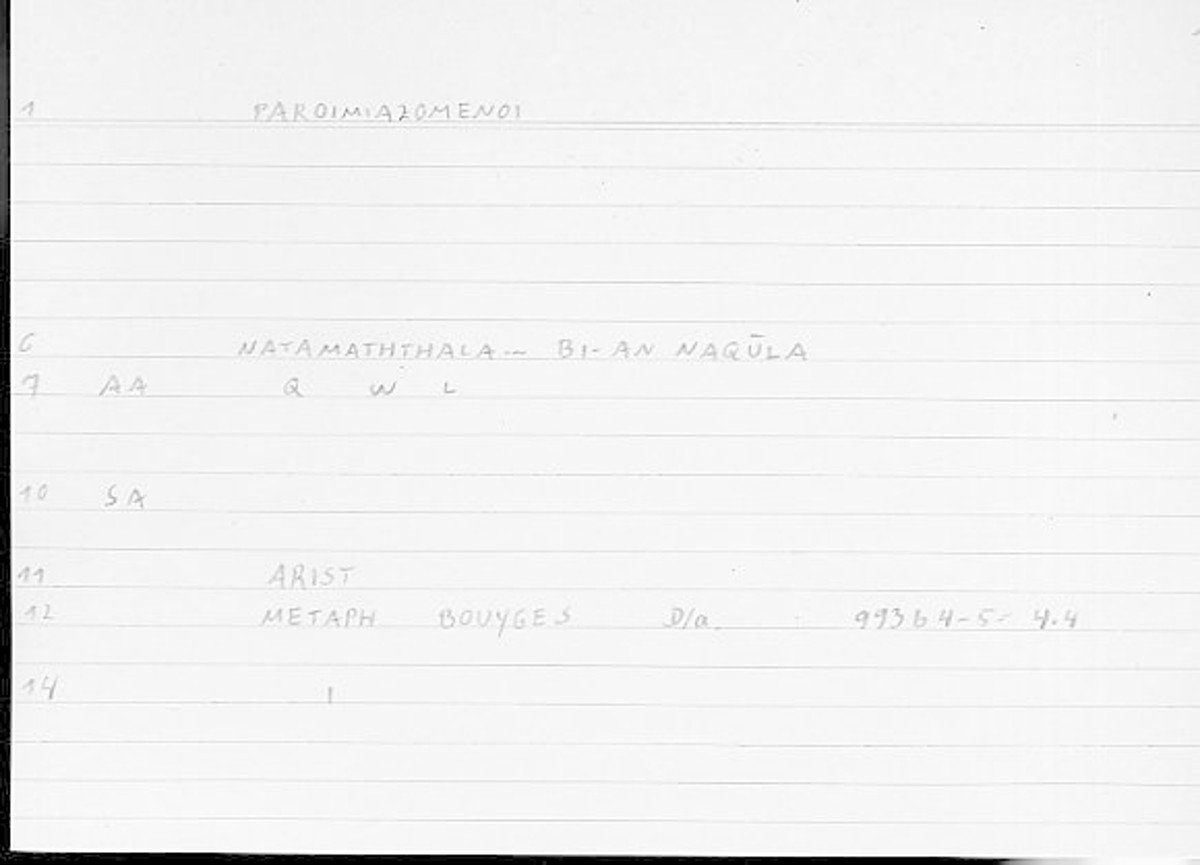 1 PAROIMIAZOMENOI
6 NATAMATHTHALA.~ BI-AN NAQŪLA
7 AA Q W L
10 SA
11 ARIST
12 METAPH BOUYGES D/a. 993b4-5= 4.4
14 I